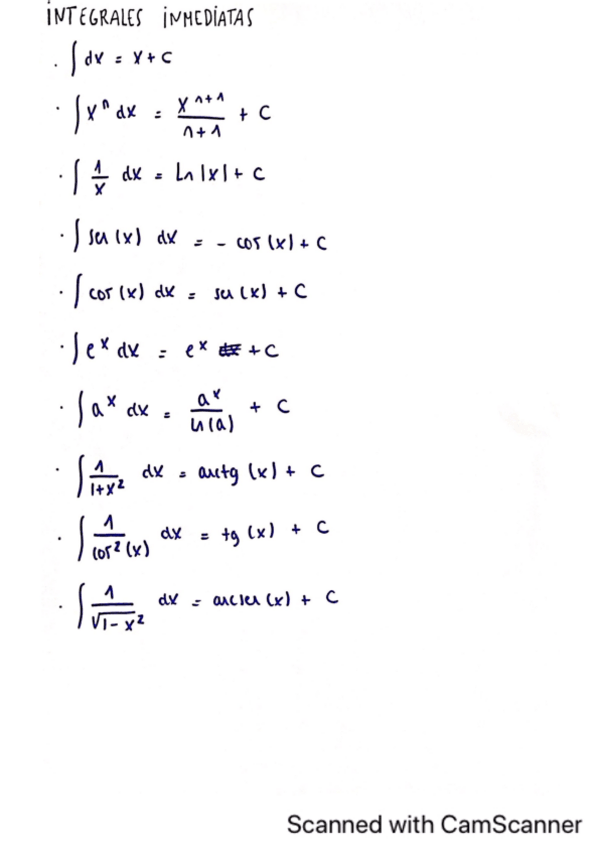 INTEGRALES INMEDIATAS
· ∫ dx = x + C
· ∫ xⁿ dx = xⁿ⁺¹/(n+1) + C
· ∫ 1/x dx = Ln |x| + C
· ∫ sen (x) dx = - cos (x) + C
· ∫ cos (x) dx = sen (x) + C
· ∫ eˣ dx = eˣ + C
· ∫ aˣ dx = aˣ/ln(a) + C
· ∫ 1/(1+x²) dx = arctg (x) + C
· ∫ 1/cos²(x) dx = tg (x) + C
· ∫ 1/√(1-x²) dx = arcsen (x) + C
Scanned with CamScanner